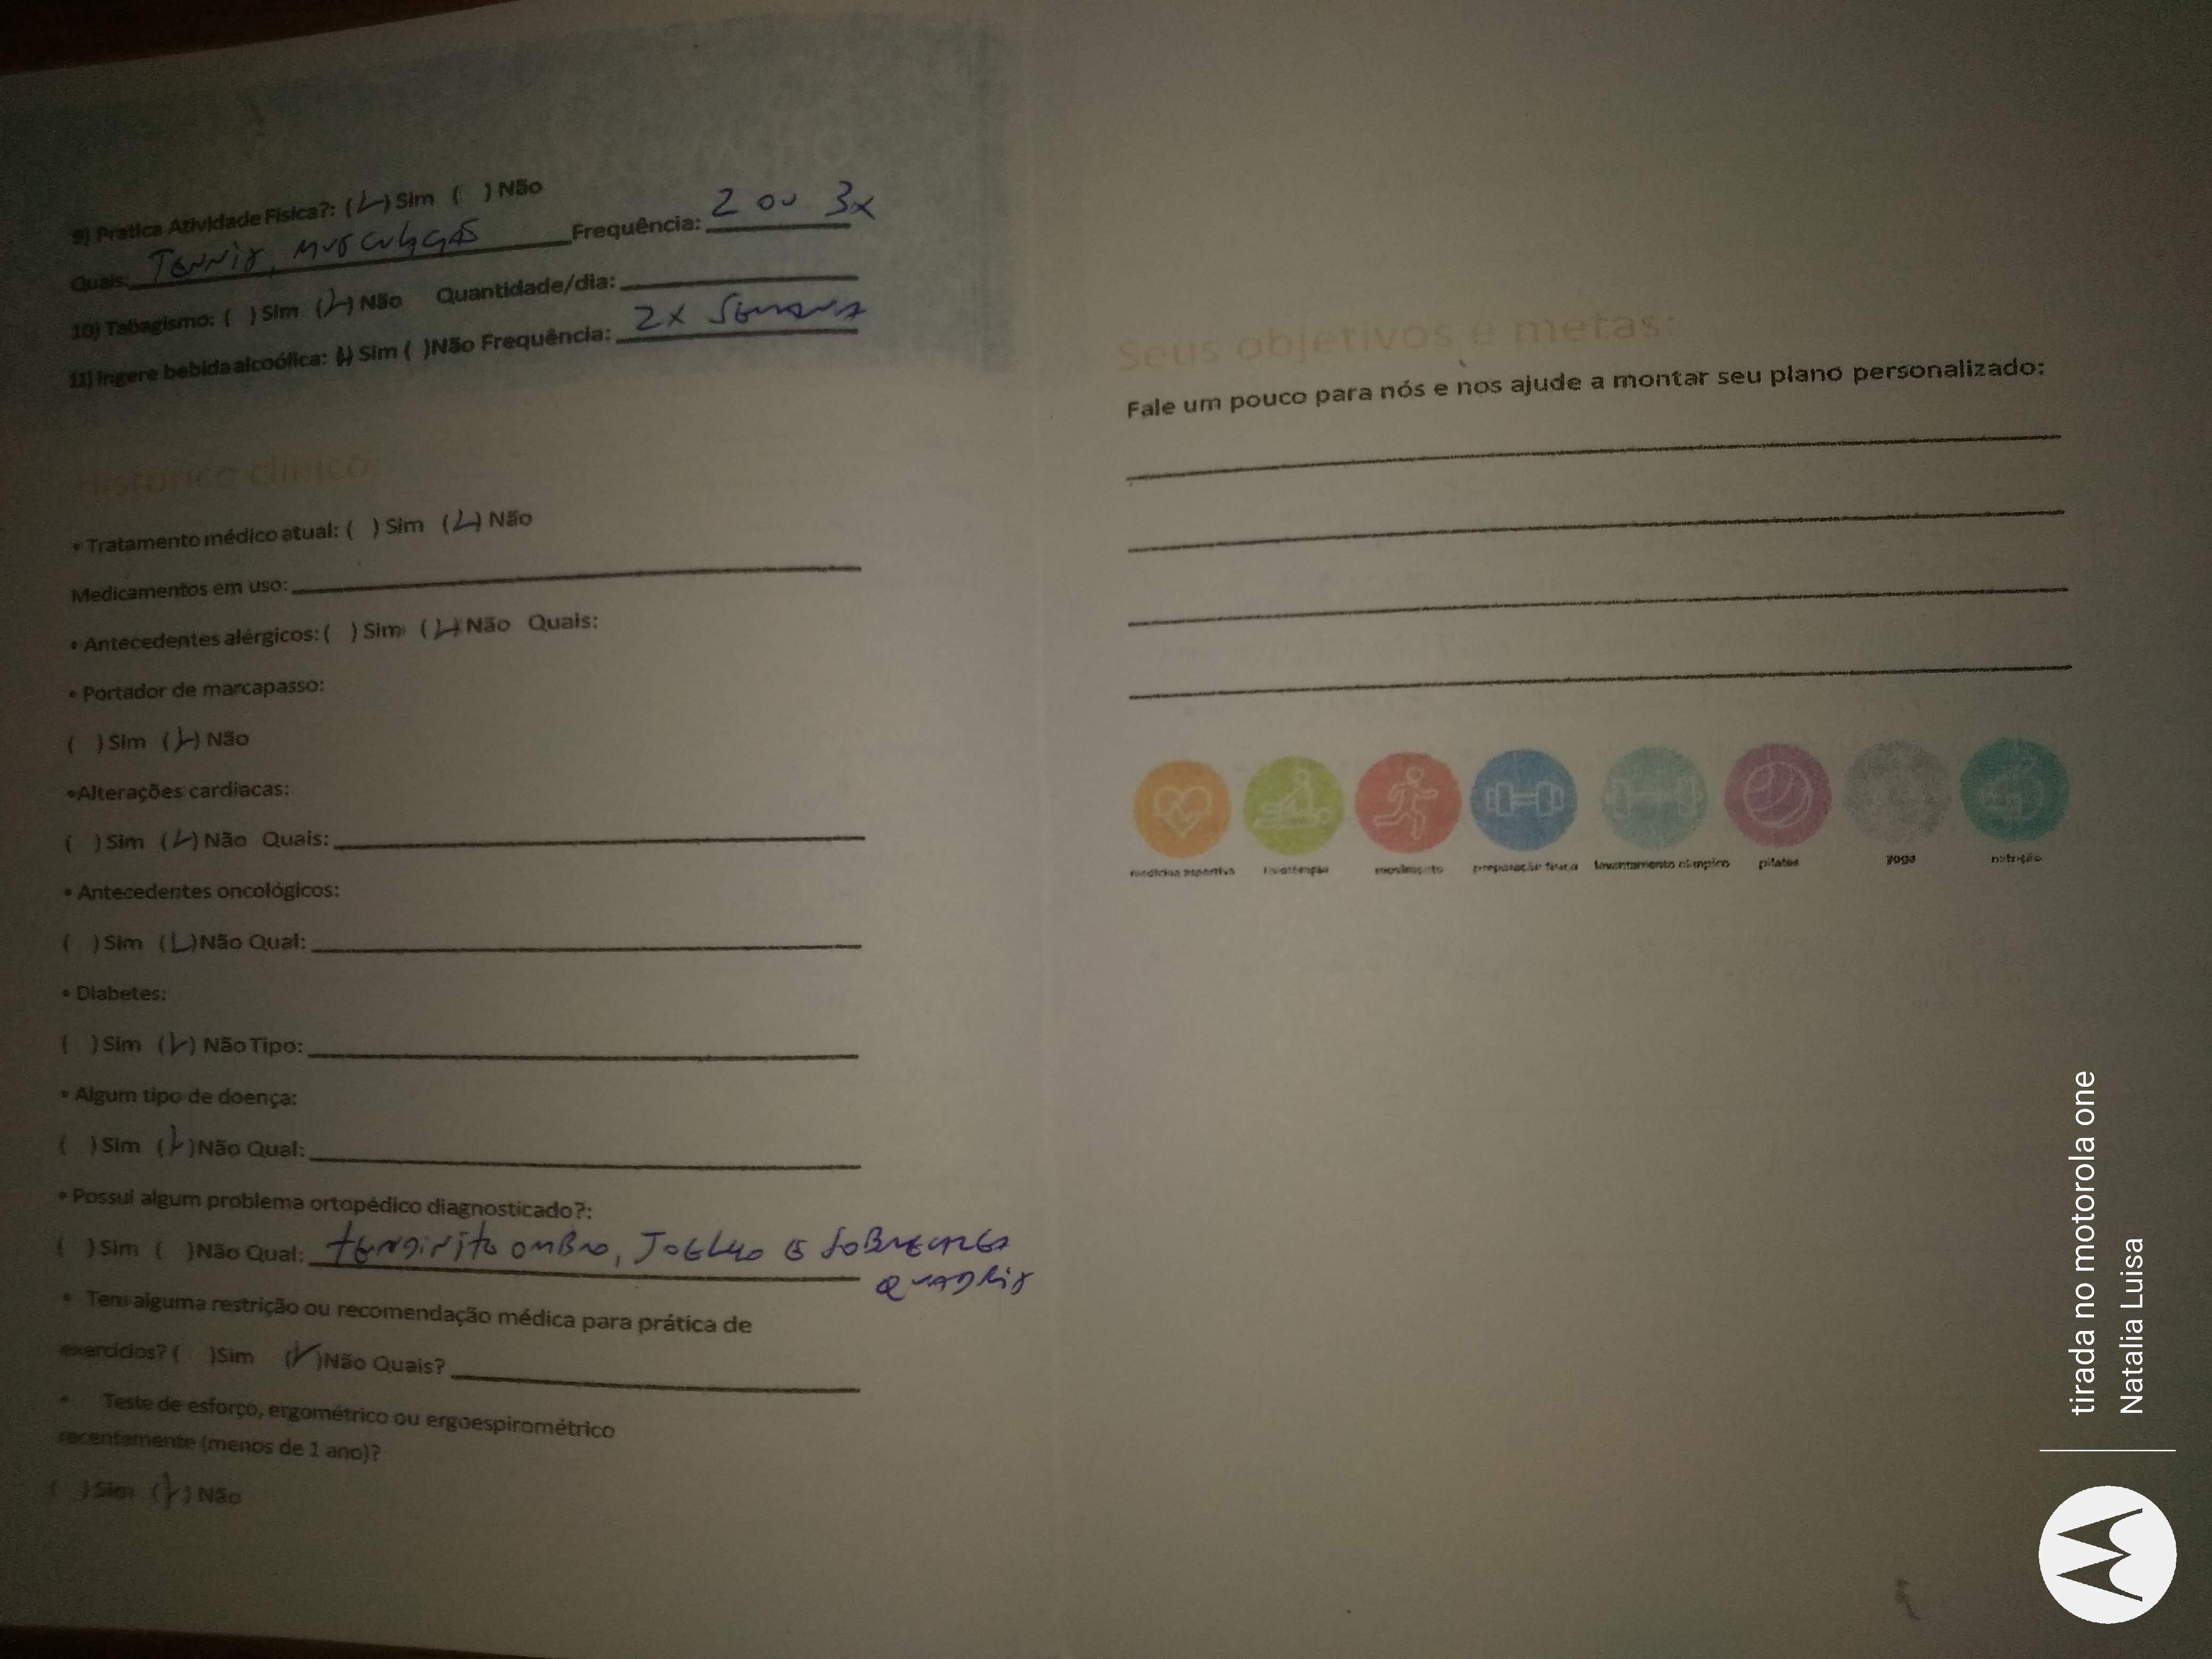 9) Pratica Atividade Física?: (X) Sim ( ) Não
Quais: Tennis, musculação Frequência: 2 ou 3x
10) Tabagismo: ( ) Sim (X) Não Quantidade/dia:
11) Ingere bebida alcoólica: (X) Sim ( ) Não Frequência: 2x semana
Histórico clínico:
• Tratamento médico atual: ( ) Sim (X) Não
Medicamentos em uso:
• Antecedentes alérgicos: ( ) Sim (X) Não Quais:
• Portador de marcapasso:
( ) Sim (X) Não
• Alterações cardíacas:
( ) Sim (X) Não Quais:
• Antecedentes oncológicos:
( ) Sim (X) Não Qual:
• Diabetes:
( ) Sim (X) Não Tipo:
• Algum tipo de doença:
( ) Sim (X) Não Qual:
• Possui algum problema ortopédico diagnosticado?:
( ) Sim ( ) Não Qual: tendinite ombro, joelho e sobrecarga
quadris
• Tem alguma restrição ou recomendação médica para prática de
exercícios? ( ) Sim (X) Não Quais?
• Teste de esforço, ergométrico ou ergoespirométrico
recentemente (menos de 1 ano)?
( ) Sim (X) Não
Seus objetivos e metas:
Fale um pouco para nós e nos ajude a montar seu plano personalizado:
medicina esportiva fisioterapia movimento preparação física levantamento olímpico pilates yoga nutrição
tirada no motorola one
Natalia Luisa